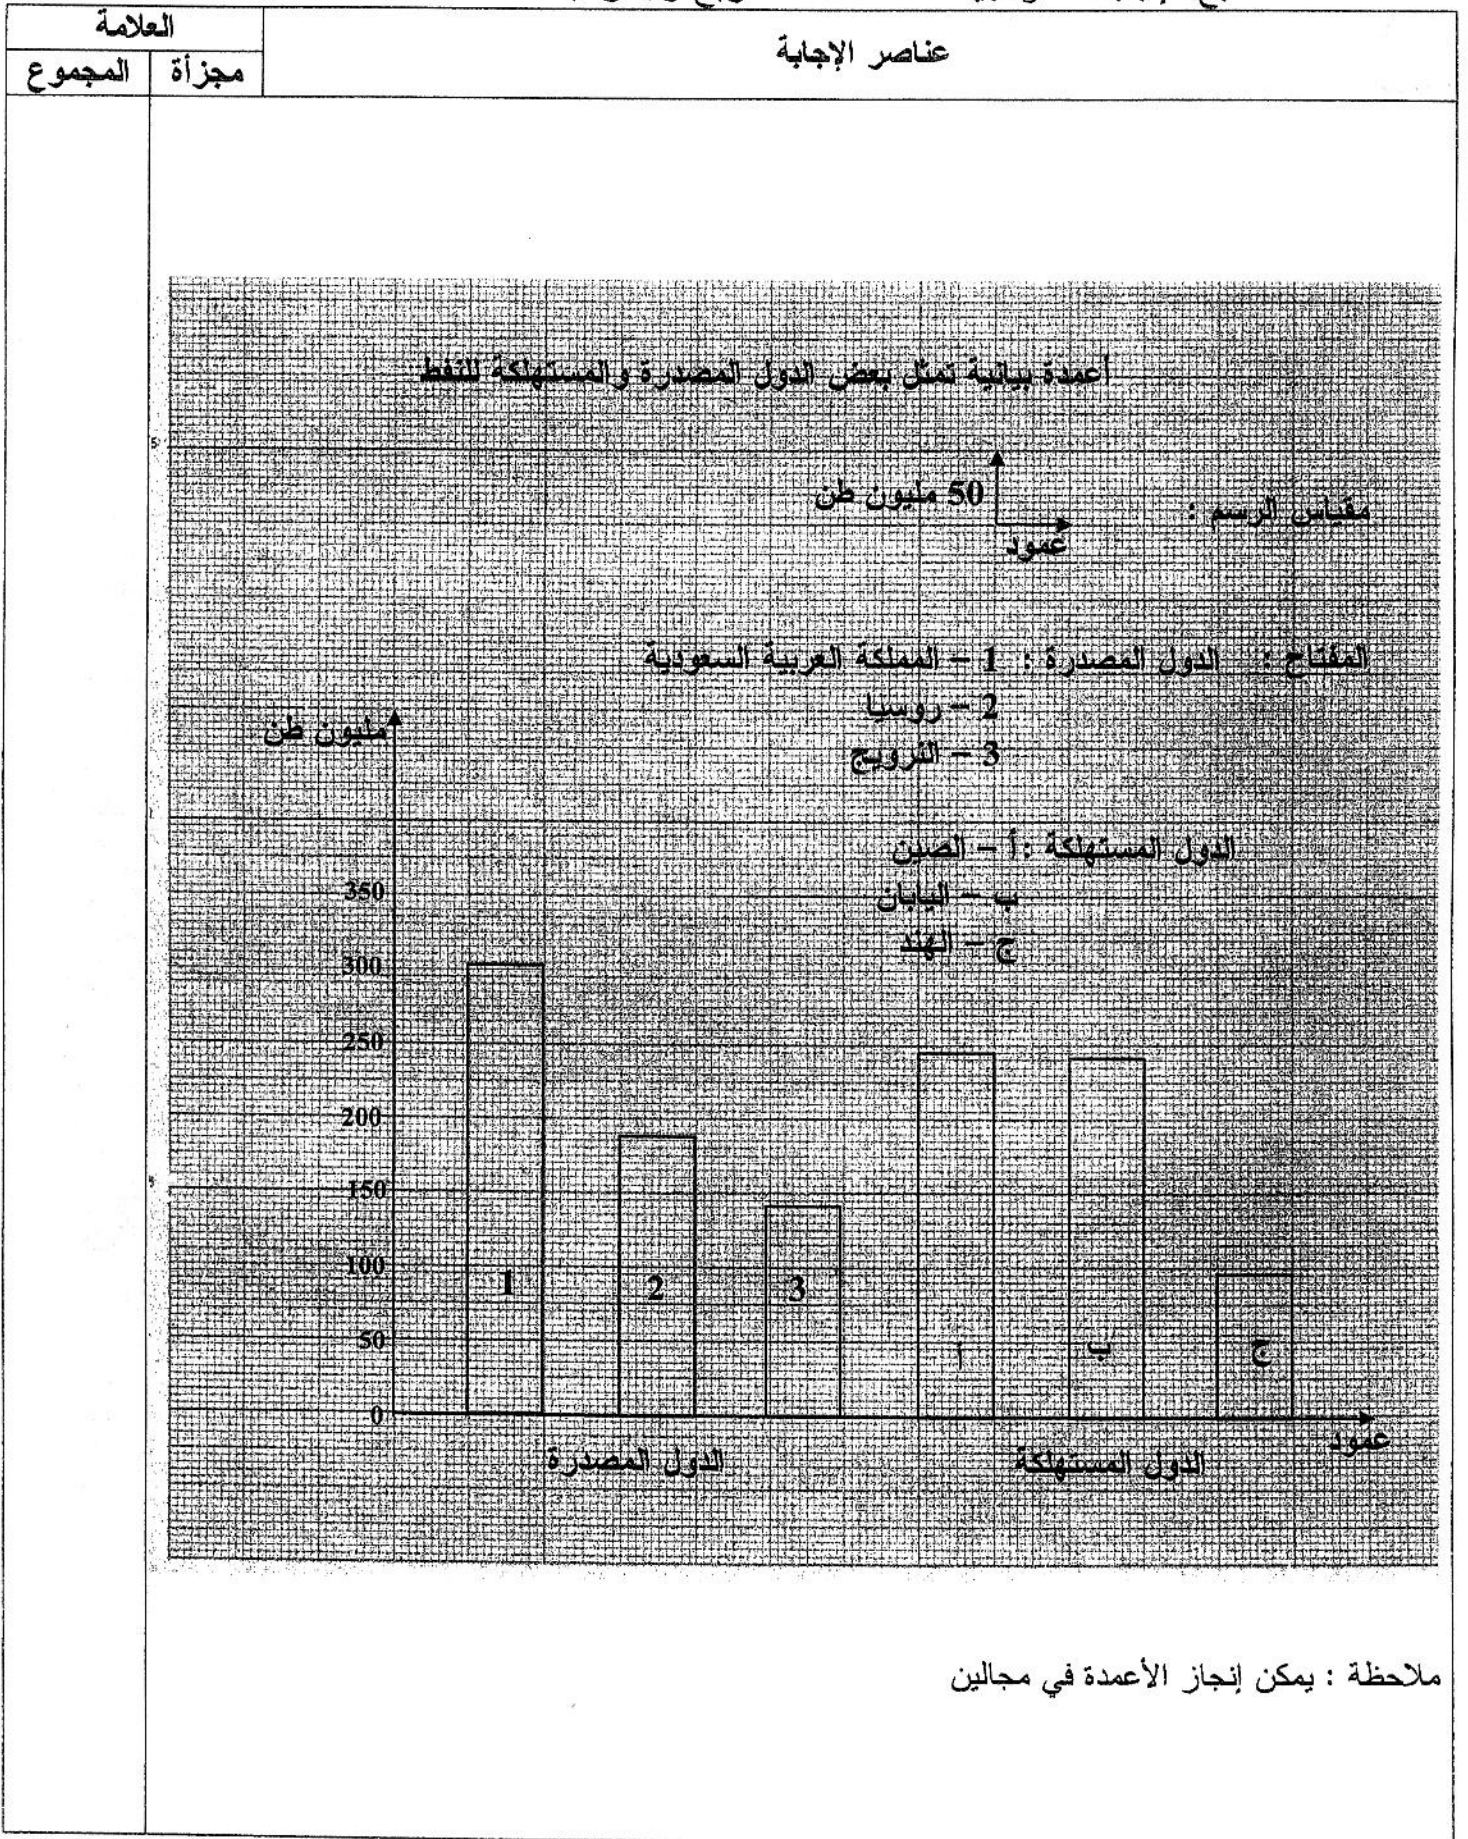 العلامة
عناصر الإجابة
مجزأة
المجموع
أعمدة بيانية تمثل بعض الدول المصدرة والمستهلكة للنفط
مقياس الرسم :
50 مليون طن
عمود
المفتاح : الدول المصدرة : 1 – المملكة العربية السعودية
2 – روسيا
3 – النرويج
الدول المستهلكة : أ – الصين
ب – اليابان
ج – الهند
مليون طن
350
300
250
200
150
100
50
0
1
2
3
أ
ب
ج
عمود
الدول المصدرة
الدول المستهلكة
ملاحظة : يمكن إنجاز الأعمدة في مجالين